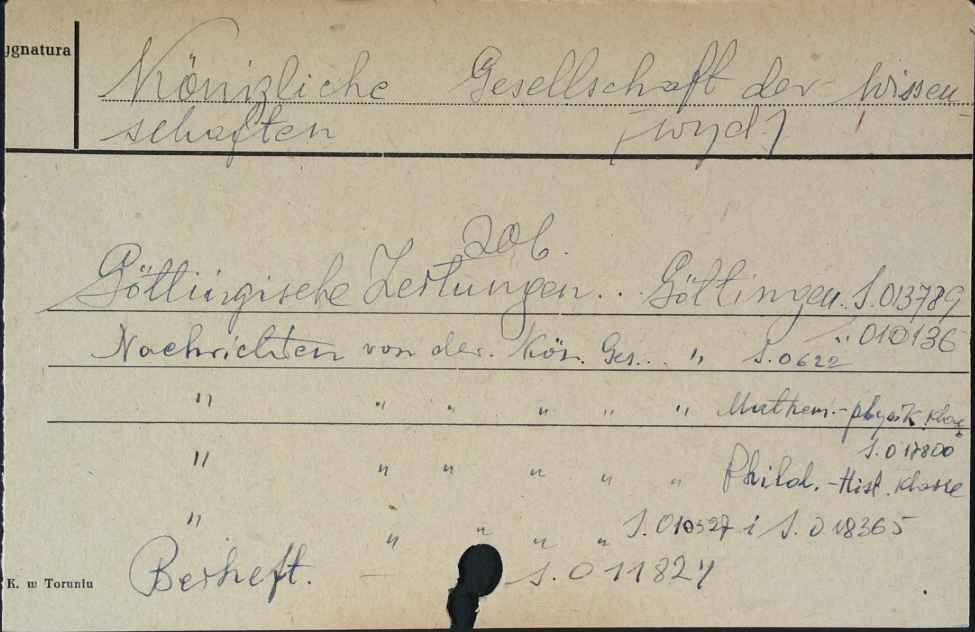 ygnatura
Königliche Gesellschaft der Wissen
schaften [wyd.]
Zob.
Göttingische Zeitungen... Göttingen. S.013789
Nachrichten von der. Kön. Ges... " S.0622 ". 010136
" " " " " " Mathem.-physik. Klas
S.017800
" " " " " " Philol.-Hist. Klasse
" " " " " S.010527 i S.018365
Beiheft. — S.011824
K. w Toruniu